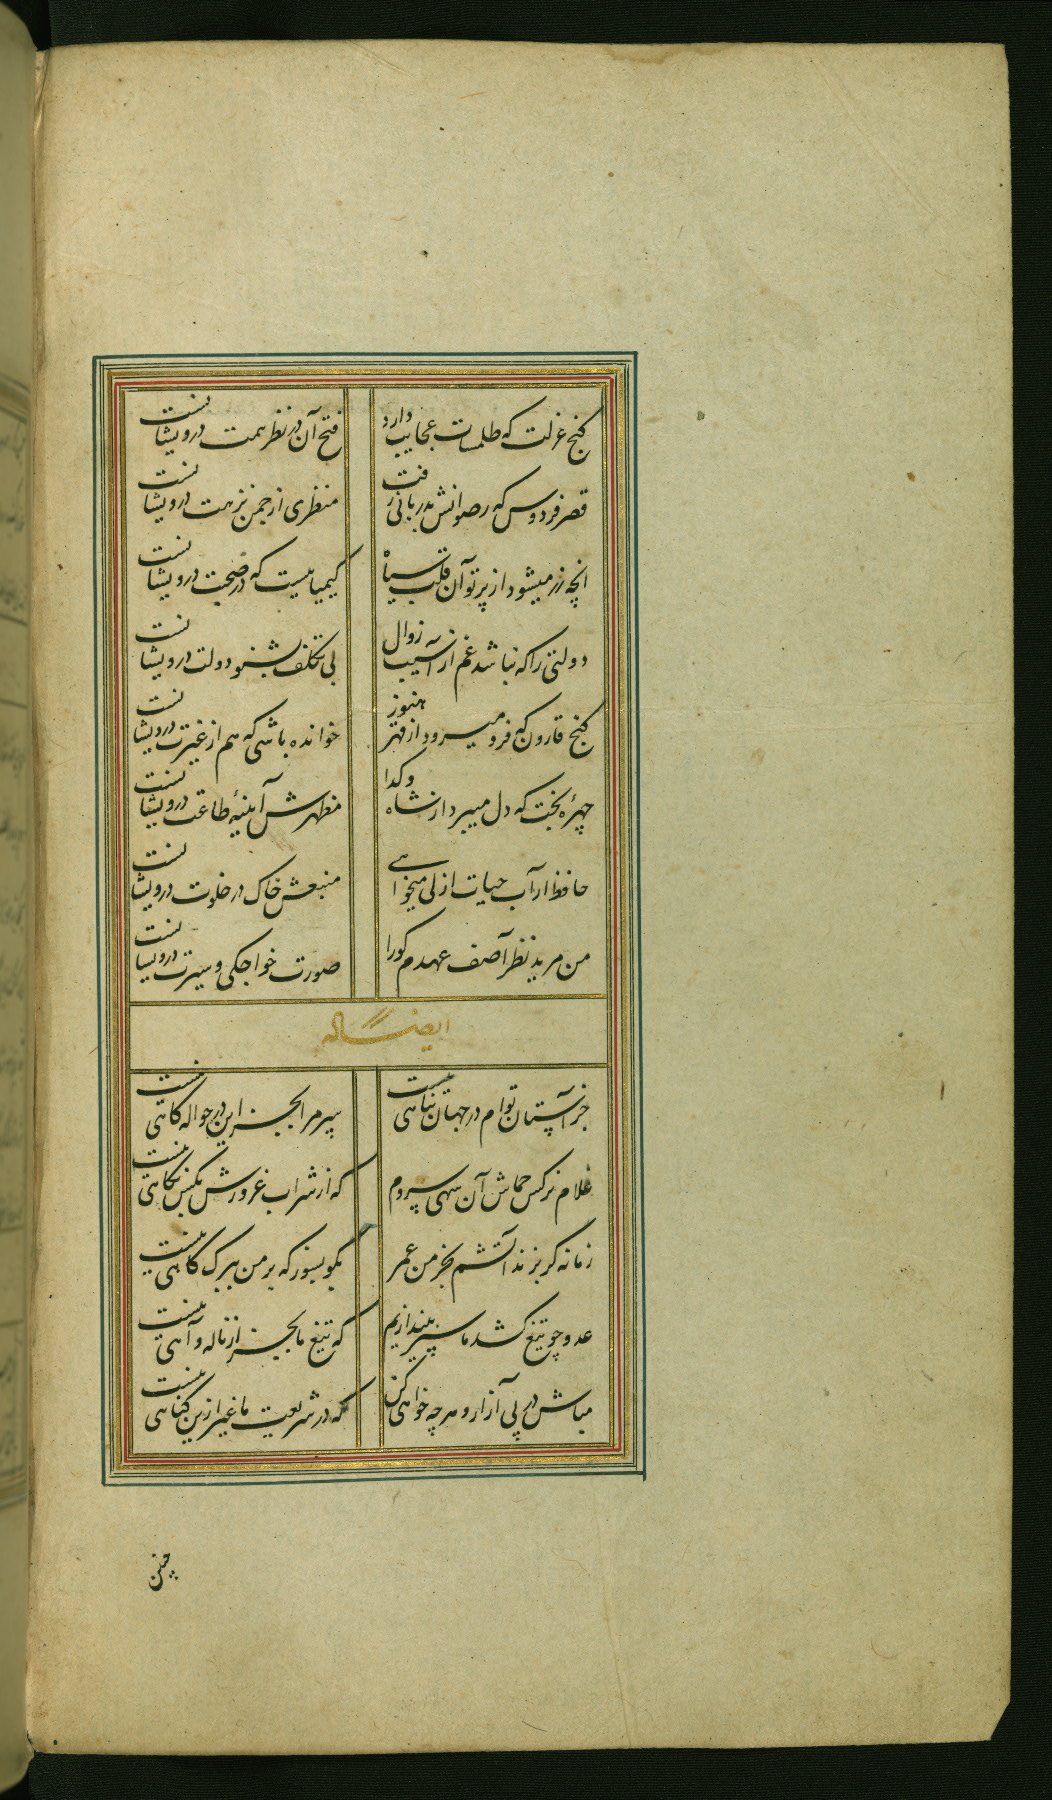 کنج عزلت که طلسمات عجایب دارد
فتح آن در نظر همت درویشانست
قصر فردوس که رضوانش بدربانی رفت
منظری از چمن نزهت درویشانست
انچه زر میشود از پرتو آن قلب سیاه
کیمیاییست که در صحبت درویشانست
دولتی را که نباشد غم از آسیب زوال
بی تکلف بشنو دولت درویشانست
کنج قارون که فرو میرود از قهر هنوز
خوانده باشی که هم از غیرت درویشانست
چهرهٔ بخت که دل میبرد از شاه و کدا
مظهرش آینهٔ طاعت درویشانست
حافظ ار آب حیات ازلی میخواهی
منبعش خاک در خلوت درویشانست
من مرید نظر آصف عهدم کورا
صورت خواجکی و سیرت درویشانست
ایضاً له
جز آستان توام در جهان پناهی نیست
سر مرا بجز این در حواله کاهی نیست
غلام نرکس جماش آن سهی سروم
که از شراب غرورش بکس نکاهی نیست
زمانه کر بزند آتشم بخرمن عمر
بکو بسوز که بر من ببرک کاهی نیست
عدو چو تیغ کشد ما سپر بیندازیم
که تیغ ما بجز از ناله و آهی نیست
مباش در پی آزار و هر چه خواهی کن
که در شریعت ما غیر ازین کناهی نیست
چنین